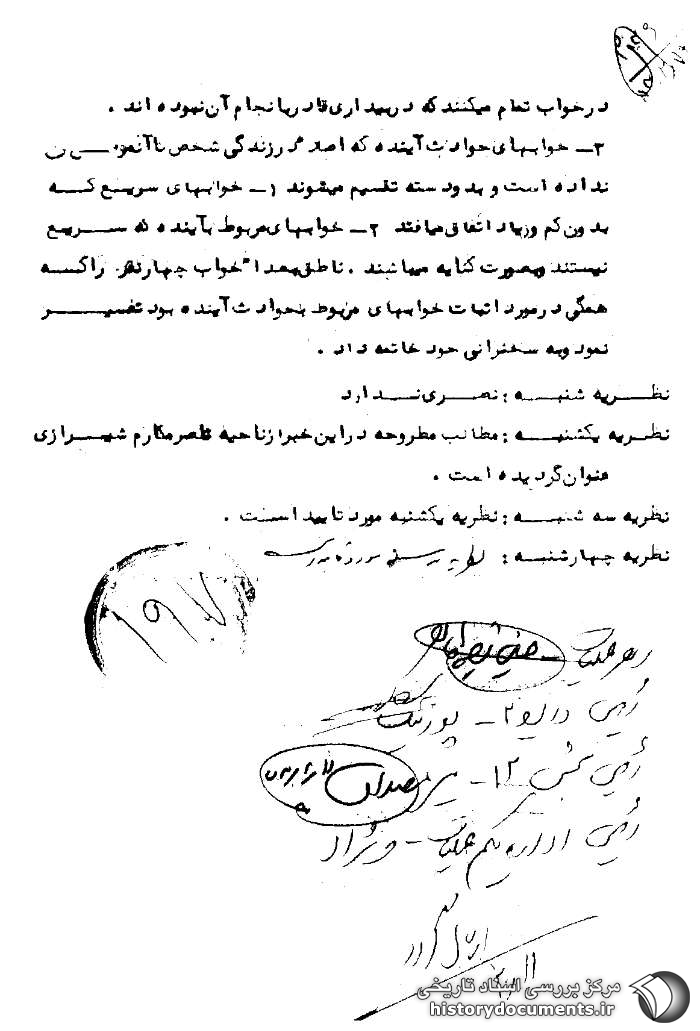 درخواب تمام میکنند که در بیداری قادر بانجام آن نبوده اند .
۳ـ خوابهای حوادث آینده که اصلا در زندگی شخص تا آنموقع
نداده است و بدو دسته تقسیم میشوند ۱ـ خوابهای سریع که
بدون کم و زیاد اتفاق میافتد ۲ـ خوابهای مربوط بآینده که سریع
نیستند و بصورت کنایه میباشند . ناطق بعدا خواب چهار نفر را که
همگی در مورد اثبات خوابهای مربوط بحوادث آینده بود تفسیر
نمود و به سخنرانی خود خاتمه داد .
نظریه شنبه : نظری ندارد
نظریه یکشنبه : مطالب مطروحه در این خبر از ناحیه ناصر مکارم شیرازی
عنوان گردیده است .
نظریه سه شنبه : نظریه یکشنبه مورد تایید است .
نظریه چهارشنبه :
۱۹۷
رهبر عملیات
رئیس دایره ۲ـ
رئیس بخش ۱۲ـ
رئیس اداره یکم عملیات ـ
مرکز بررسی اسناد تاریخی
historydocuments.ir